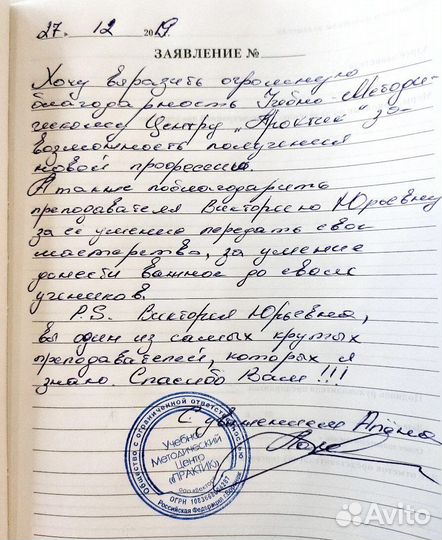 27. 12 2019
ЗАЯВЛЕНИЕ №
Хочу выразить огромную
благодарность Учебно-Методи-
ческому Центру „Практик" за
возможность получения
новой профессии.
А также поблагодарить
преподавателя Викторию Юрьевну
за её умение передать своё
мастерство, за умение
донести важное до своих
учеников.
P.S. Виктория Юрьевна,
вы один из самых крутых
преподавателей, которых я
знаю. Спасибо Вам!!!
С уважением Алёна
Общество с ограниченной ответственностью
Учебно-
Методический
Центр
«ПРАКТИК»
ОГРН
Российская Федерация, г.
Avito